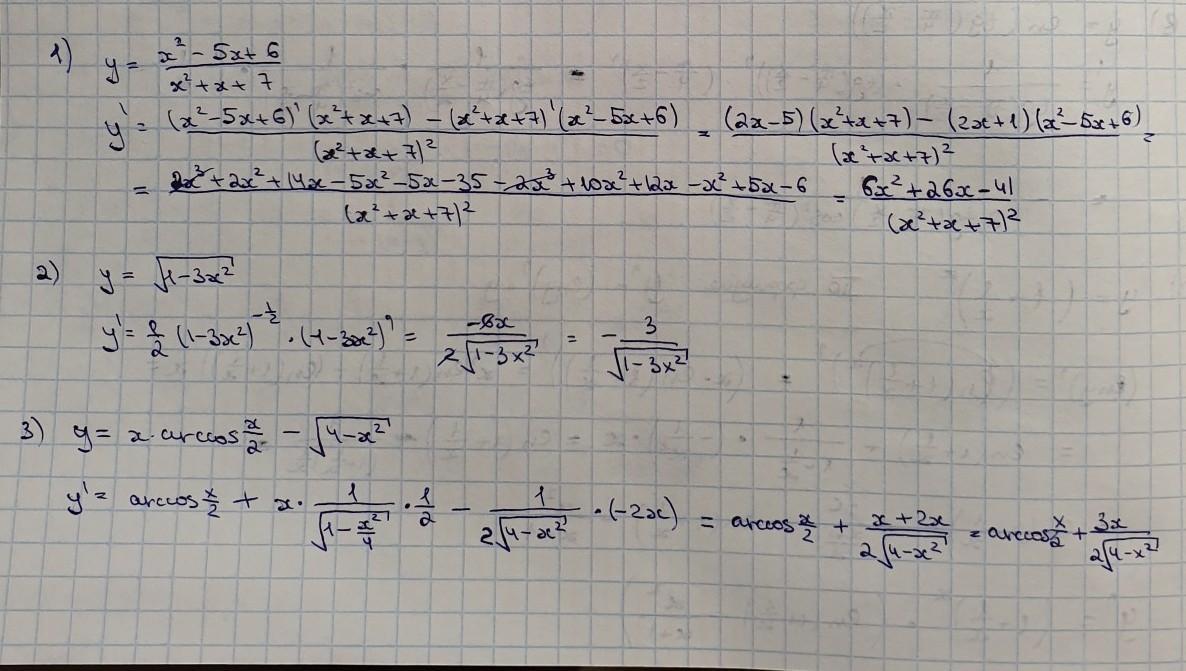 1) y = (x² - 5x + 6)/(x² + x + 7)
y' = ((x² - 5x + 6)' (x² + x + 7) - (x² + x + 7)' (x² - 5x + 6))/(x² + x + 7)² = ((2x - 5)(x² + x + 7) - (2x + 1)(x² - 5x + 6))/(x² + x + 7)² =
= (2x³ + 2x² + 14x - 5x² - 5x - 35 - 2x³ + 10x² + 12x - x² + 5x - 6)/(x² + x + 7)² = (6x² + 26x - 41)/(x² + x + 7)²
2) y = √(1 - 3x²)
y' = 1/2 (1 - 3x²)^(-1/2) · (1 - 3x²)' = (-6x)/(2√(1 - 3x²)) = - 3/√(1 - 3x²)
3) y = x · arccos x/2 - √(4 - x²)
y' = arccos x/2 + x · 1/√(1 - x²/4) · 1/2 - 1/(2√(4 - x²)) · (-2x) = arccos x/2 + (x + 2x)/(2√(4 - x²)) = arccos x/2 + 3x/(2√(4 - x²))